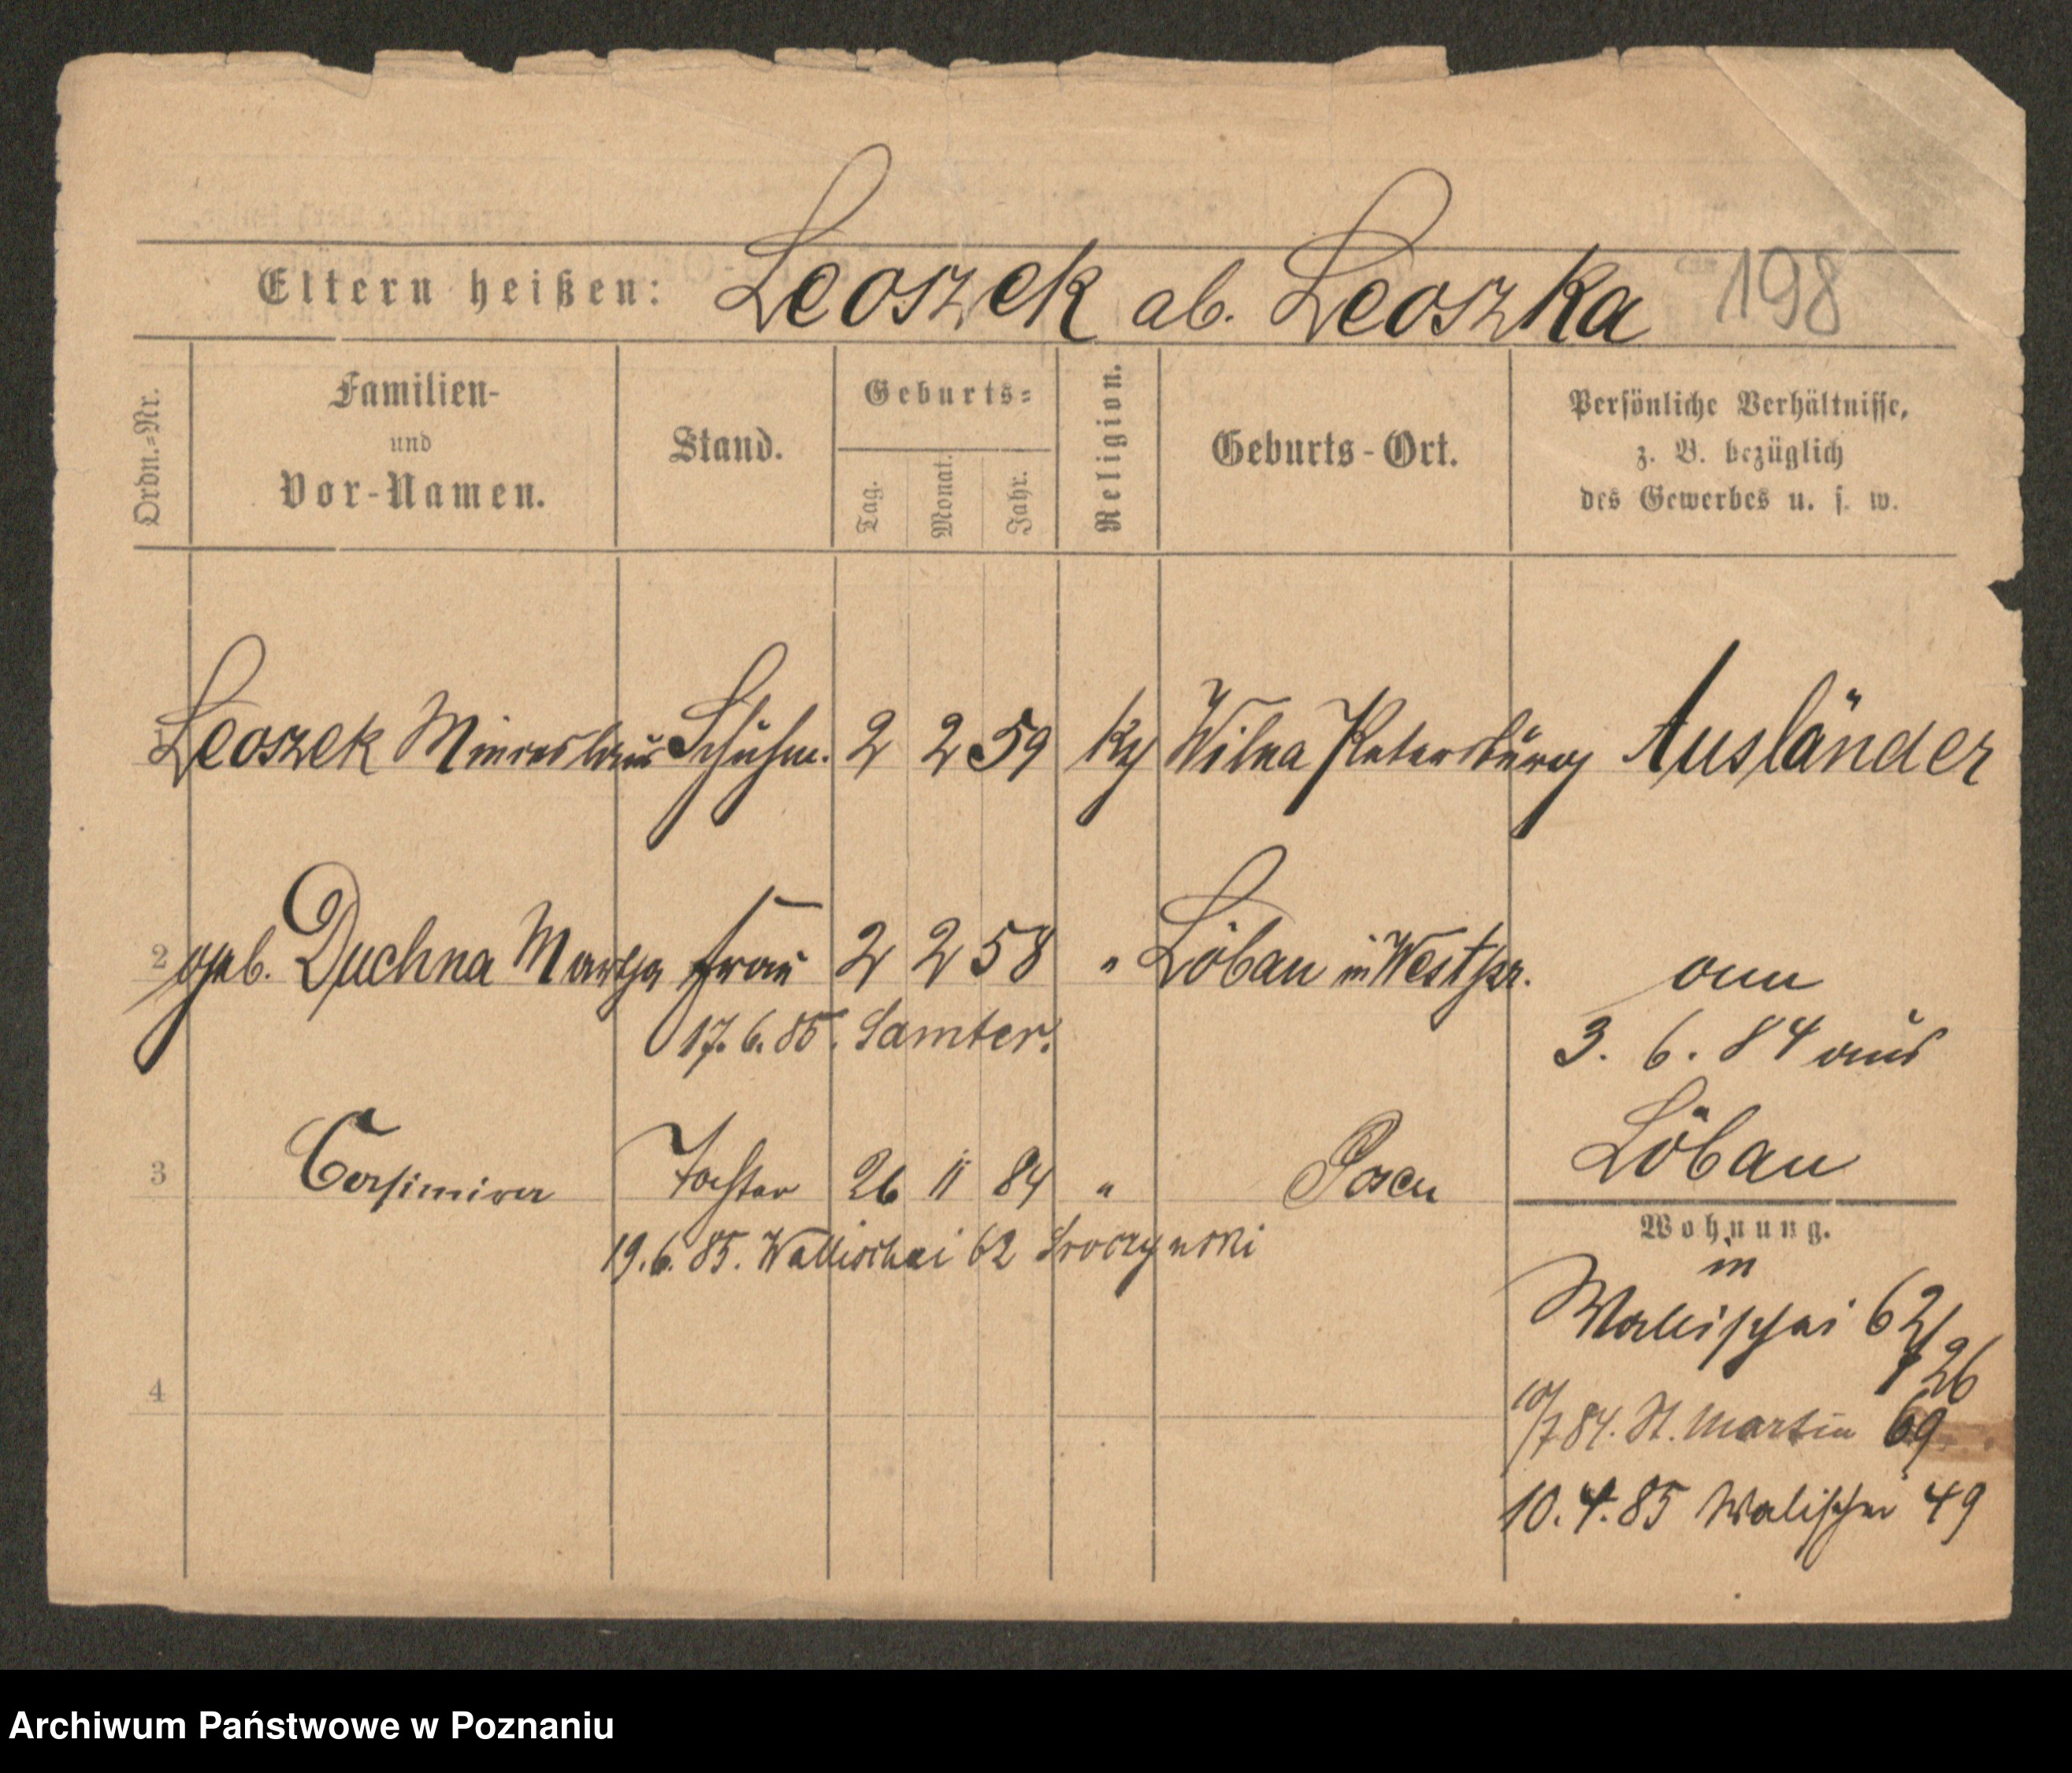 Eltern heißen: Leoszek ab. Leoszka 198
Ordn.-Nr.
Familien-
und
Vor-Namen.
Stand.
Geburts-
Tag.
Monat.
Jahr.
Religion.
Geburts-Ort.
Persönliche Verhältnisse,
z. B. bezüglich
des Gewerbes u. s. w.
Leoszek Schuhm. 2 2 59 Wilna Petersburg Ausländer
2 geb. Duchna Frau 2 2 58 " Löbau in Westpr.
17. 6. 85. Samter.
3. 6. 84 aus
Löbau
3 Casimira Tochter 26 11 84 " Posen
19. 6. 85. Wallischei 62 Sroczynski
Wohnung.
in
Wallischei 62/
26
10/7 84. St. Martin 69
10. 4. 85 Walischei 49
4
Archiwum Państwowe w Poznaniu